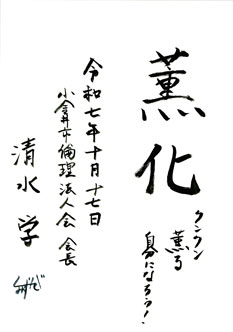 薫化
クンクン
薫る
身になろう!
令和七年十月十七日
小金井市倫理法人会 会長
清水 学